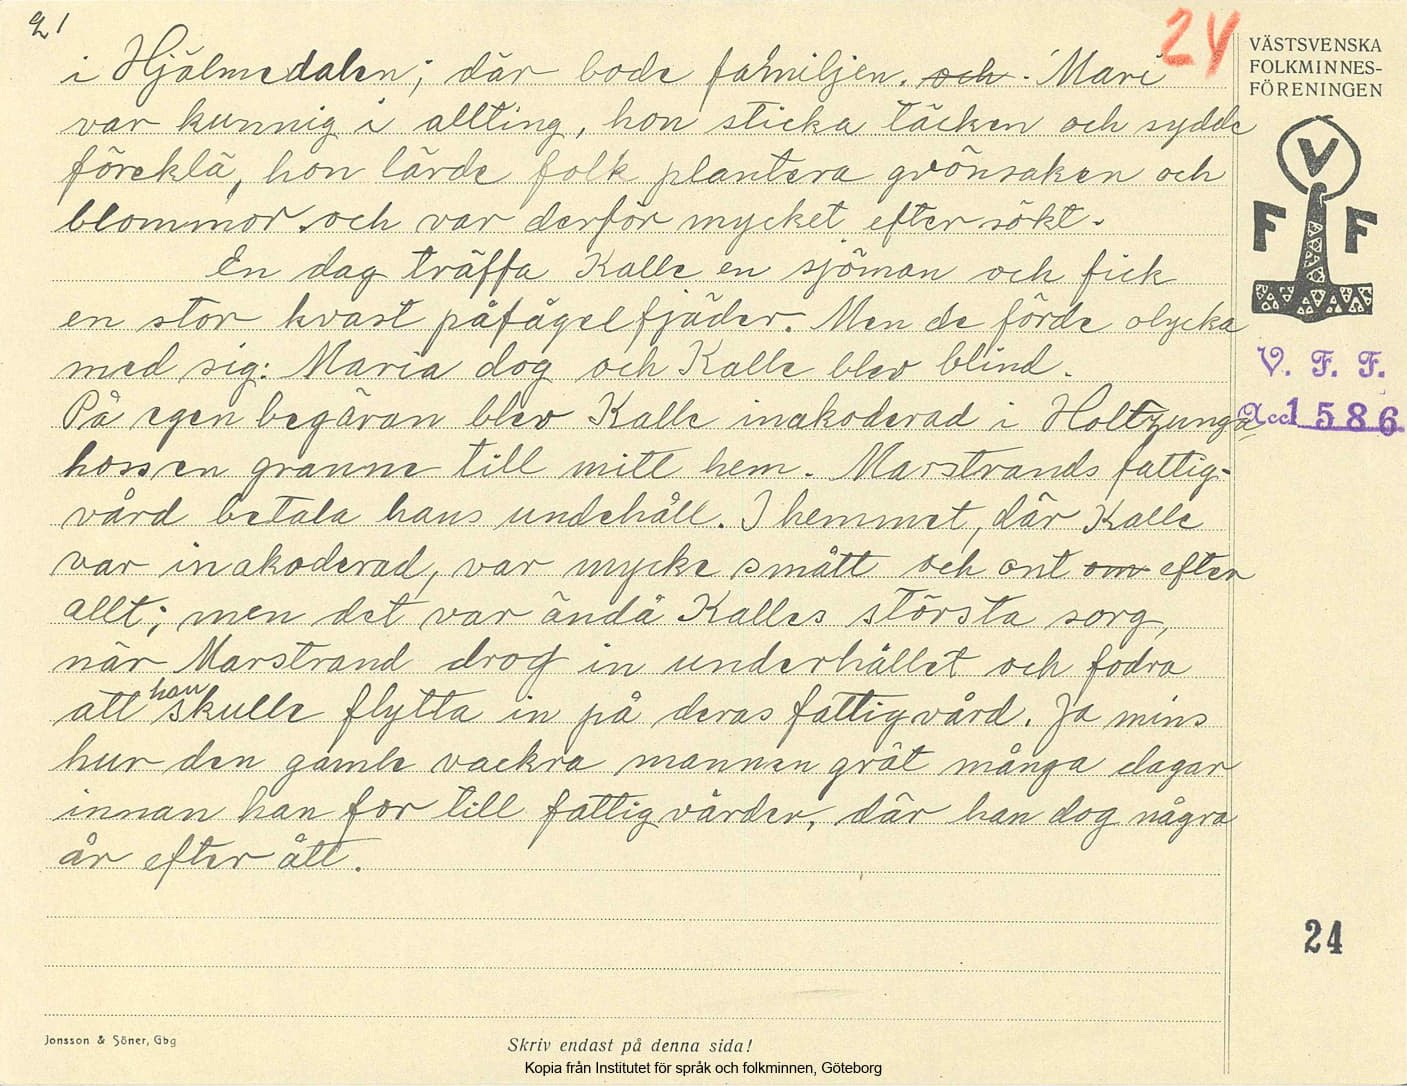 21
24
VÄSTSVENSKA
FOLKMINNES-
FÖRENINGEN
i Hjälmedalen; där bode familjen. och. Mari
var kunnig i allting, hon sticka täcken och sydde
föreklä, hon lärde folk plantera grönsaken och
blommor och var derför mycket efter sökt.
En dag träffa Kalle en sjöman och fick
en stor kvast påfågelfjäder. Men de förde olycka
med sig: Maria dog och Kalle blev blind.
På egen begäran blev Kalle inakoderad i Holtzunga,
hossen granne till mitt hem. Marstrands fattig-
vård betala hans undehåll. I hemmet, där Kalle
var inakoderad, var mycke smått och ont om efter
allt; men det var ändå Kalles största sorg,
när Marstrand drog in underhållet och fodra
att han skulle flytta in på deras fattigvård. Ja mins
hur den gamle vackra mannen grät många dagar
innan han for till fattigvården, där han dog några
år efter ått.
V
F F
V. F. F.
Acc 1586
24
Jonsson & Söner, Gbg
Skriv endast på denna sida!
Kopia från Institutet för språk och folkminnen, Göteborg